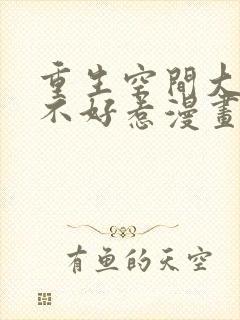 重生空間大
不好惹漫畫
有鱼的天空